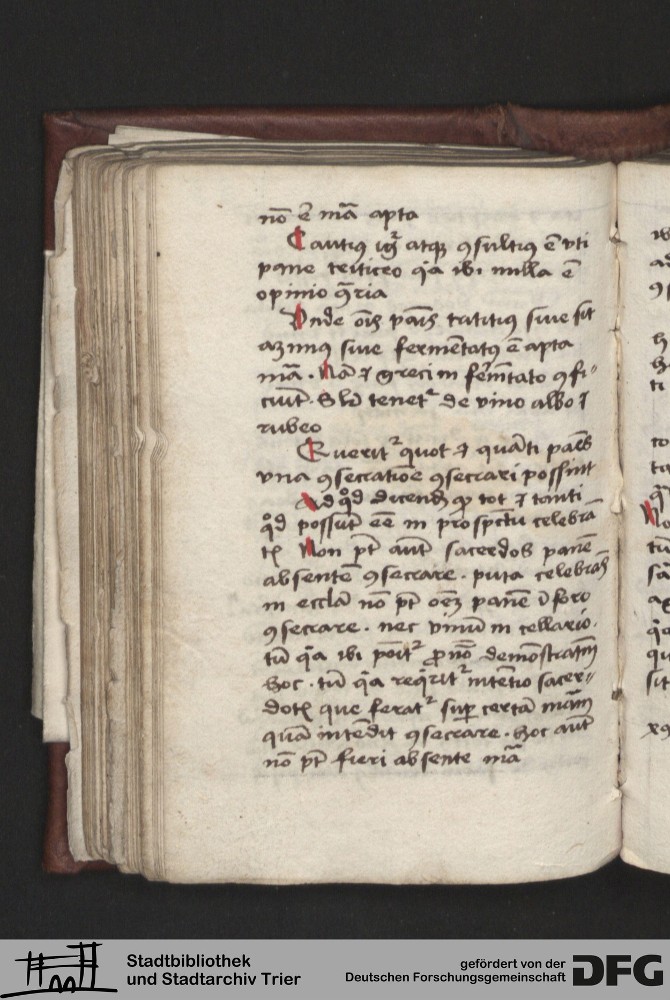 nō ē mā apta
Cautiꝰ igr̄ atqꝫ ꝯsultiꝰ ē vti
pane triticeo qͥa ibi nulla ē
opinio ꝯ̄ria
Vnde oīs pāis triticiꝰ siue sit
azimꝰ siue fermētatꝰ ē apta
mā . Nā ⁊ greci in fermētato ꝯfi-
ciūt . Sīlr tenetᷣ de vino albo ⁊
rubeo
Queritᷣ quot ⁊ quāti paēs
vna ꝯsecratiōe ꝯsecrari possint
Ad qͦd dicendū ꝙ tot ⁊ tanti
qͦd possūt eē in prospectu celebrā
tis Non pt̄ aūt sacerdos panē
absentē ꝯsecrare . puta celebrās
in eccl̄a nō pt̄ oēꝫ panē ī foro
ꝯsecrare . nec vinū in cellario .
tū qͥa ibi ponitᷣ ꝓnō demōstratiuū
hoc . tū qͥa reqͥritᷣ intētio sacer-
dotis que feratᷣ suꝑ certā mām
quā intēdit ꝯsecrare . Hoc aūt
nō pt̄ fieri absente mā
Stadtbibliothek
und Stadtarchiv Trier
gefördert von der
Deutschen Forschungsgemeinschaft
DFG